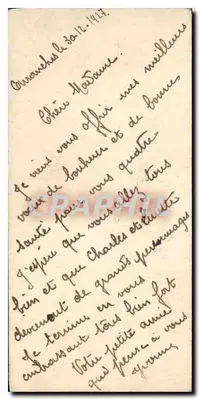 Avranches le 30.12.1927.
Chère Madame.
Je viens vous offrir mes meilleurs
vœux de bonheur et de bonne
santé pour vous quatre
J'espère que vous allez tous
bien et que Charles et
devenont de grands personnages
Je termine en vous
embrassant tous bien fort
Votre petite amie
qui pense à vous
Yvonne
CARPHILA